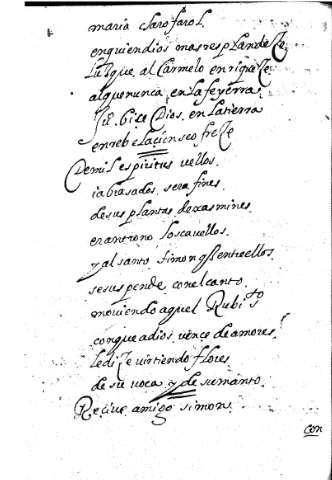 maria claro farol
en quien dios mas resplandeze
Luz que al Carmelo enriqueze
al que nunca en la fe yerra
hizo Dios en la tierra
en rebelacion se ofreze
De mil espiritus vellos
i abrasados serafines
de sus plantas de jasmines
eran trono los cavellos
y al santo simon qe entre ellos
se suspende con el canto
moviendo aquel Rubi sto
con que a dios vence de amores
le dize virtiendo flores
de su voca y de su manto
Recive amigo simon
con